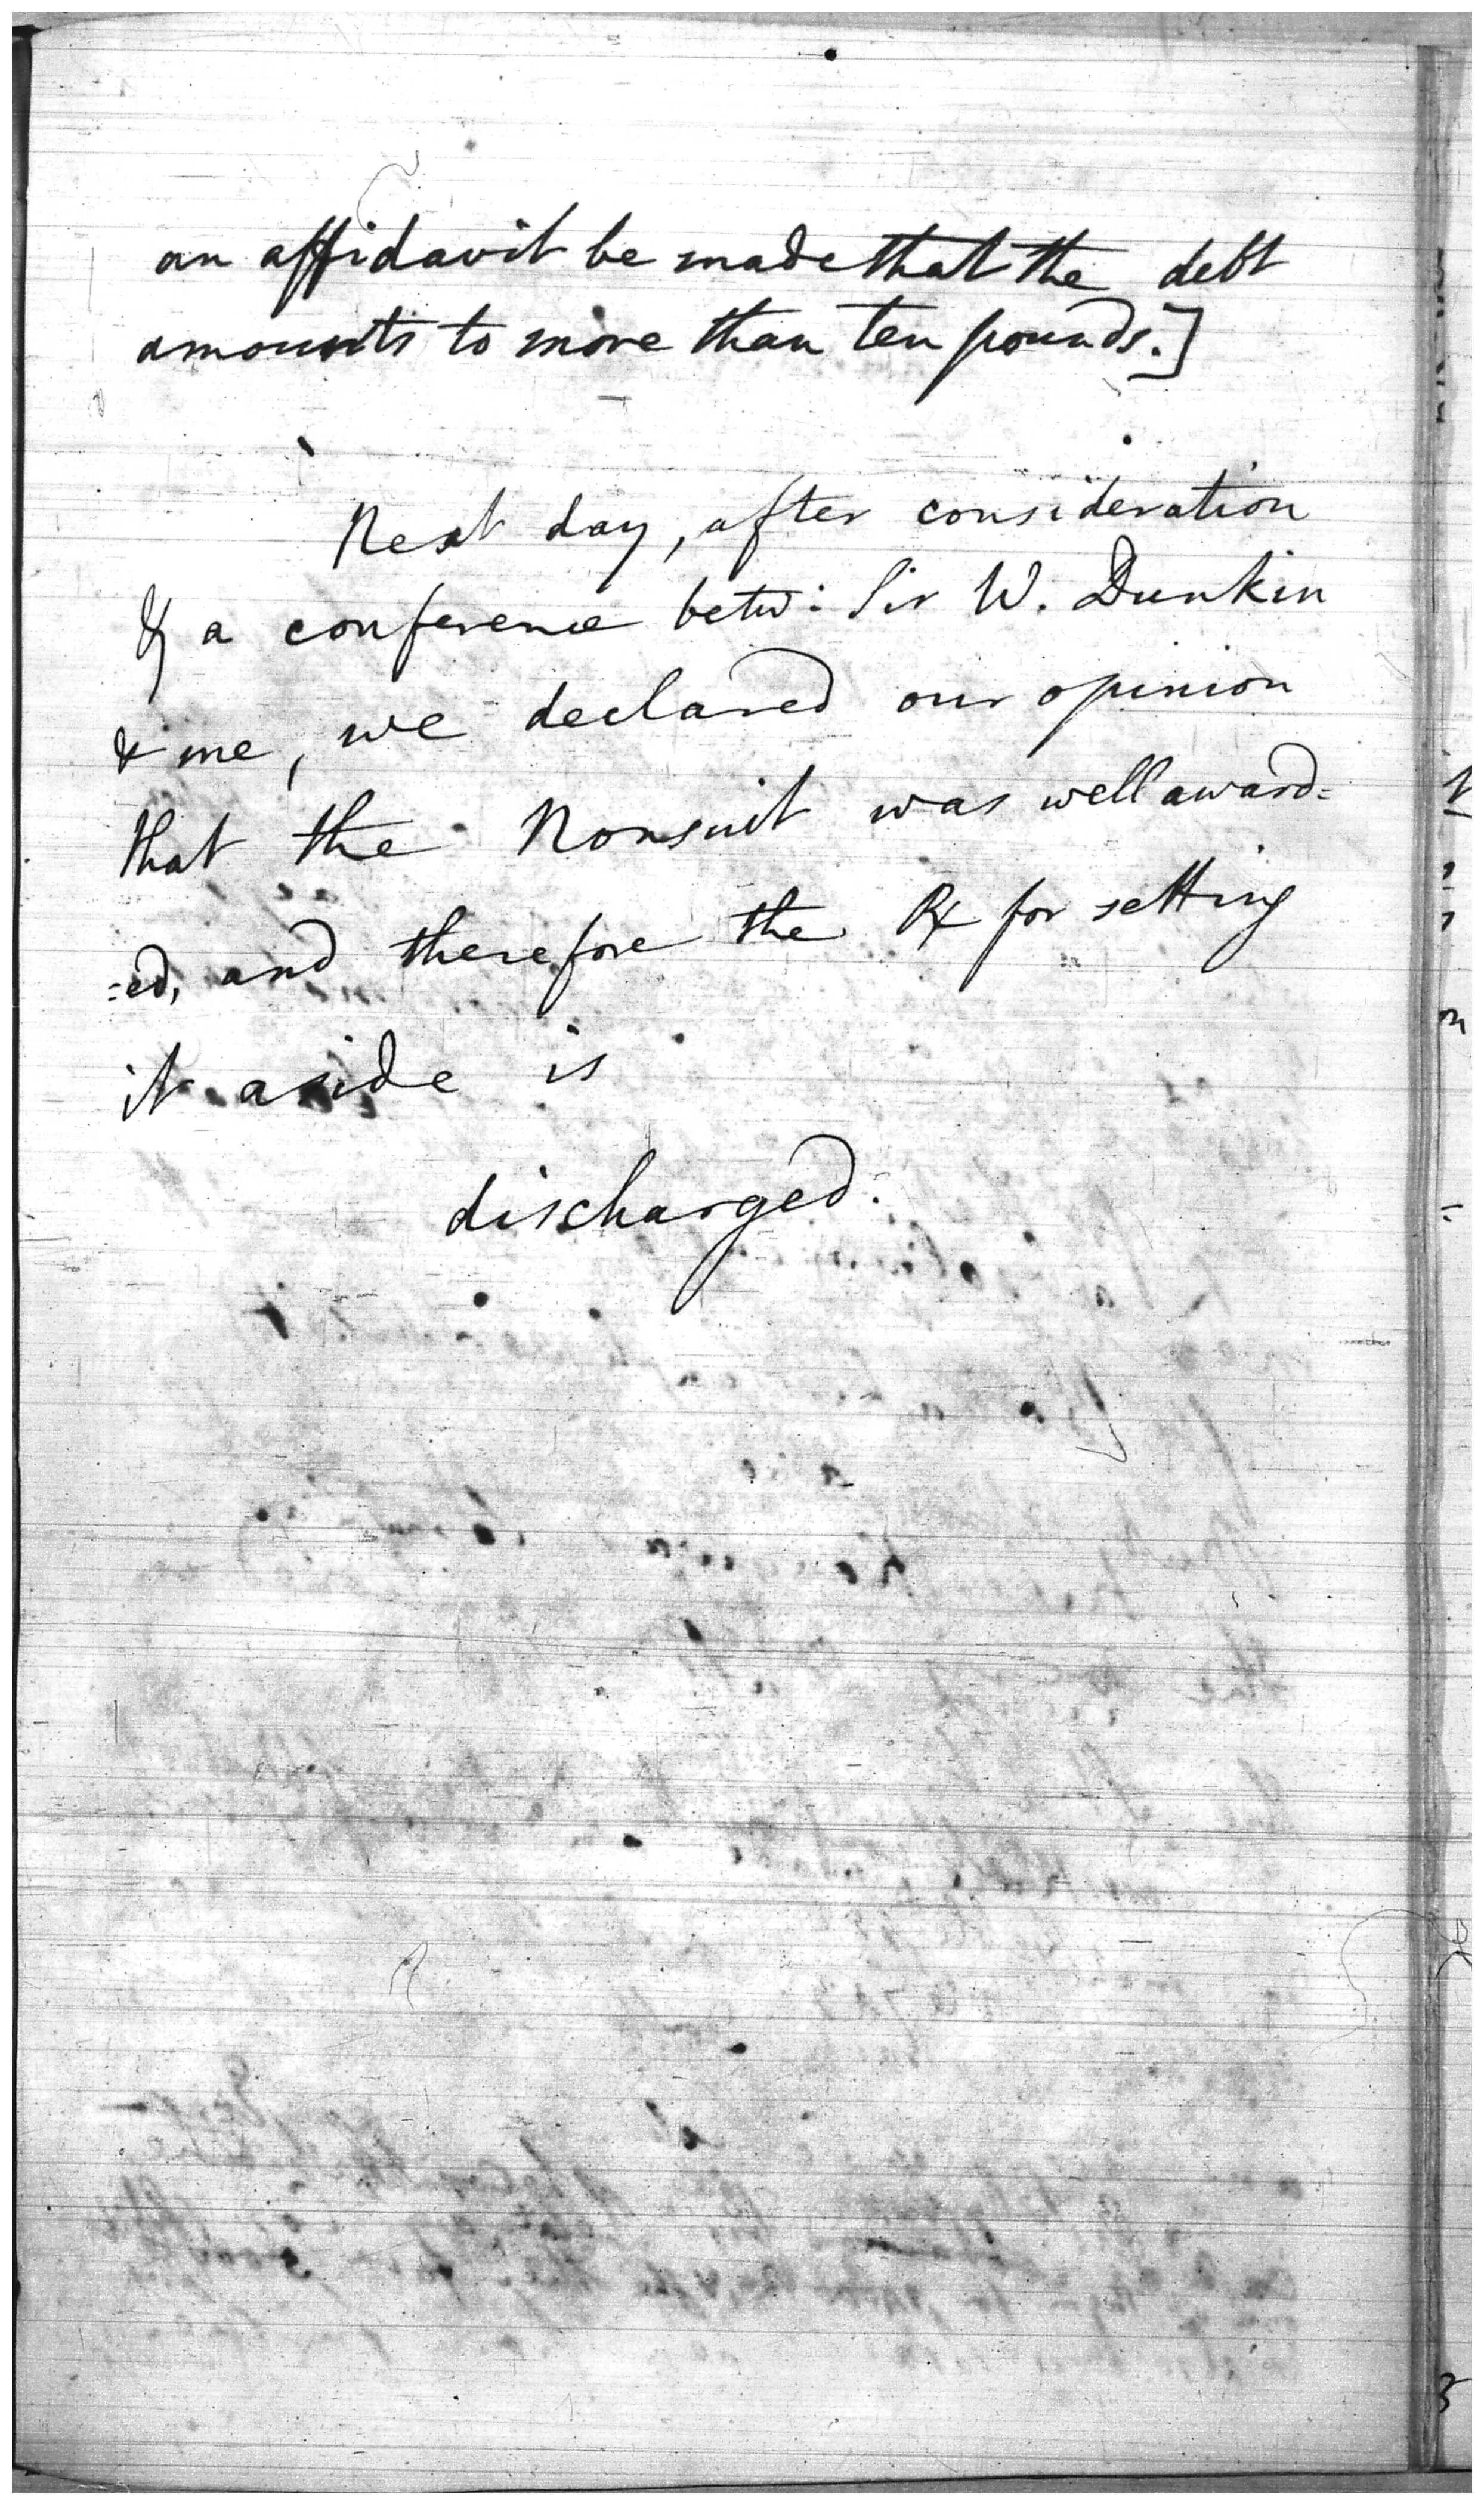 an affidavit be made that the debt
amounts to more than ten pounds.]
Next day, after consideration
& a conference betw: Sir W. Dunkin
& me, we declared our opinion
that the Nonsuit was well award=
=ed, and therefore the R for setting
it aside is
discharged.